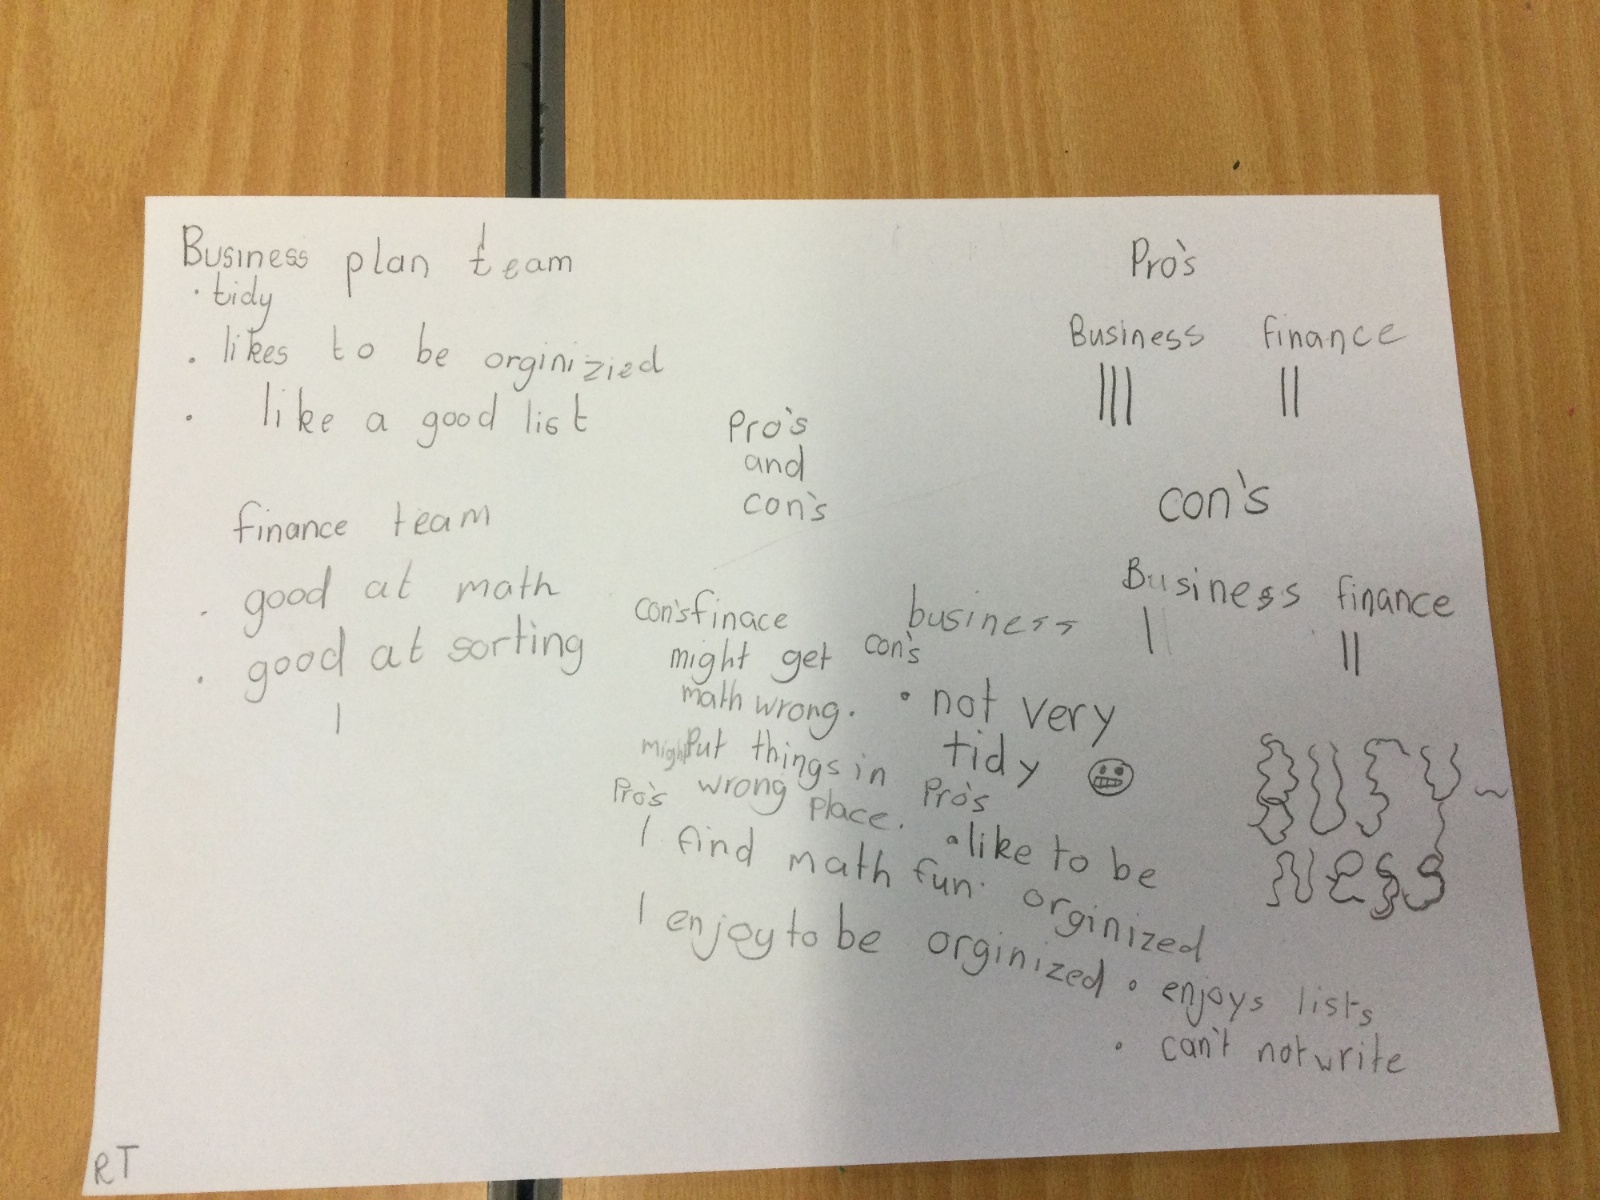 Business plan team
· tidy
· likes to be orginizied
· like a good list
finance team
· good at math
· good at sorting
Pro's
and
con's
Pro's
Business finance
||| ||
con's
Business finance
| ||
con's finace
might get
math wrong.
might Put things in
wrong place.
Pro's
I find math fun.
I enjoy to be orginized
business
con's
• not very
tidy
Pro's
• like to be
orginized
• enjoys lists
• can't not write
ness
RT